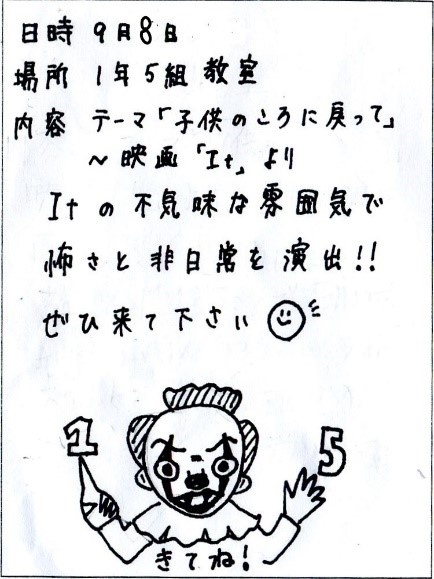 日時 9月8日
場所 1年5組教室
内容 テーマ「子供のころに戻って」
～映画「It」より
Itの不気味な雰囲気で
怖さと非日常を演出!!
ぜひ来て下さい
1 5
きてね!